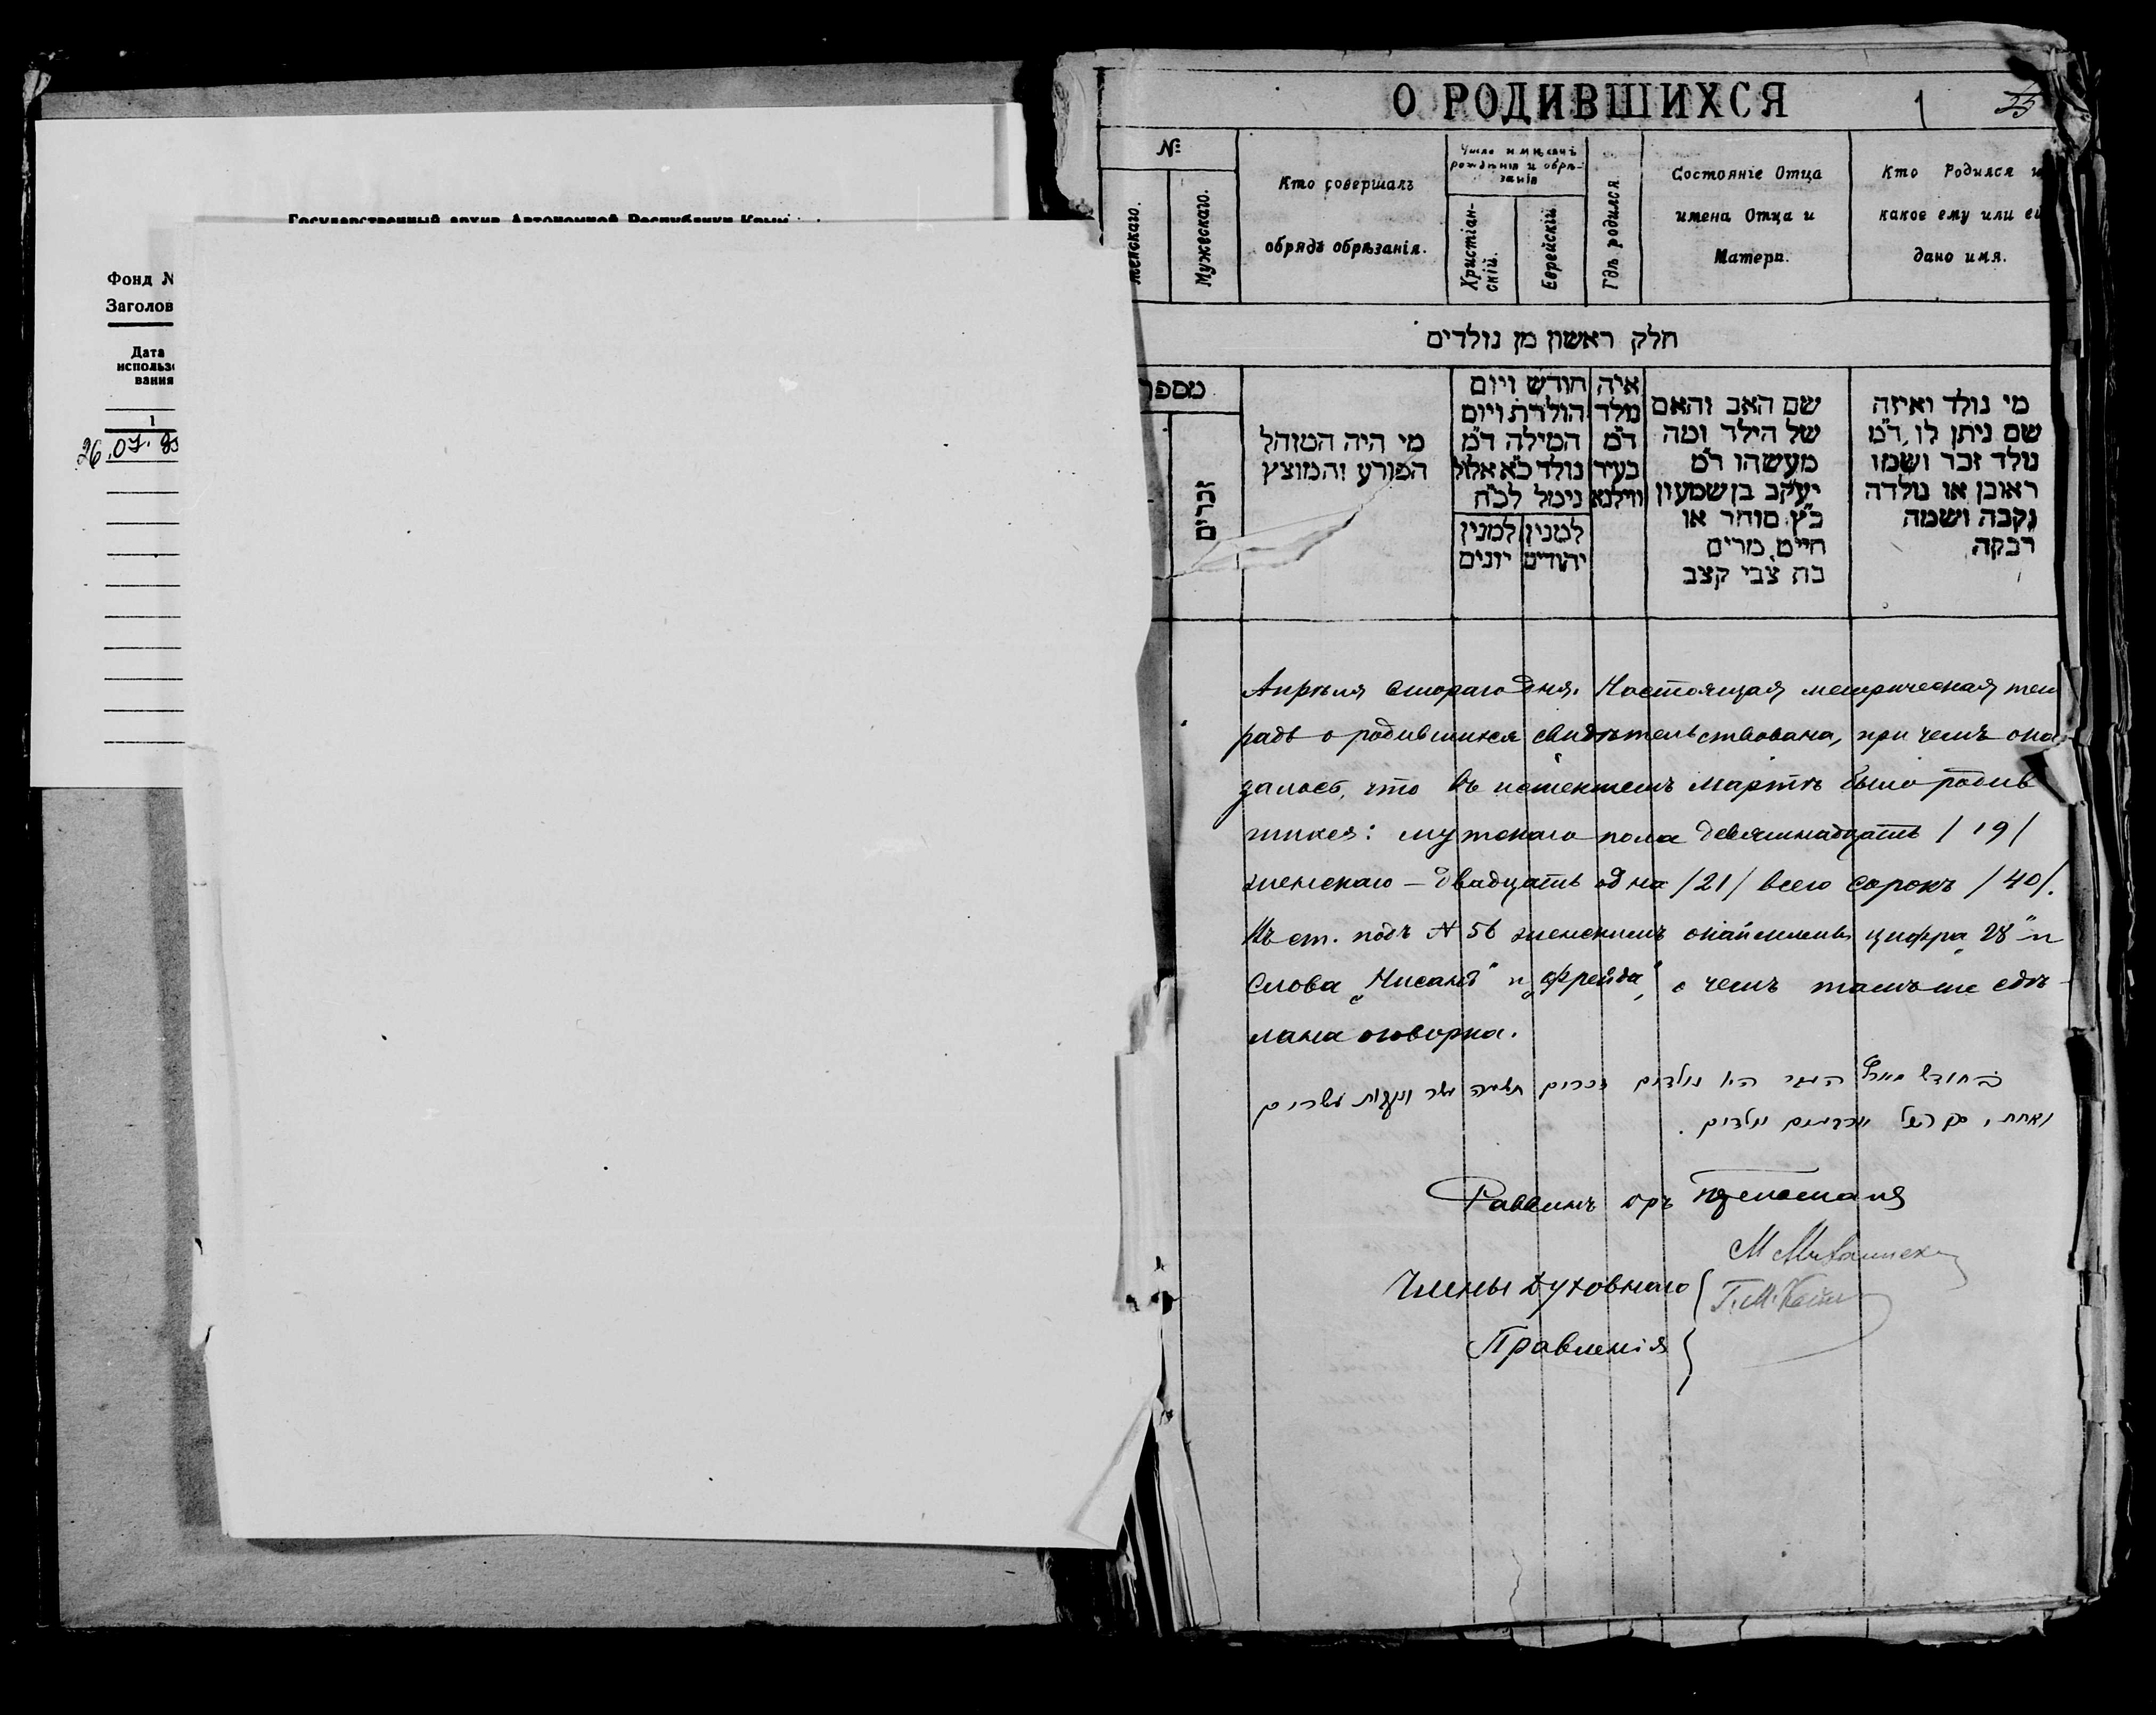 Государственный архив Автономной Республики Крым
Фонд N
Заголов
Дата
использо
вания
1
26.07.
О РОДИВШИХСЯ
1
№
женскаго.
Мужескаго.
Кто совершалъ
обрядъ обрѣзанія.
Число и мѣсяцъ
рожденія и обрѣ-
занія
Христіан-
скій.
Еврейскій
Гдѣ родился
Состояніе Отца
имена Отца и
Матери.
Кто Родился и
какое ему или ей
дано имя.
חלק ראשון מן נולדים
מספר
זכרים
מי היה המוהל
הפורע והמוצץ
חודש ויום
הולדת ויום
המילה ד״מ
נולד כ״א אלול
נימול לכ״ח
למנין
יהודים
למנין
יונים
איה
נולד
ד״מ
בעיר
ווילנא
שם האב והאם
של הילד ומה
מעשהו ד״מ
יעקב בן שמעון
כ״ץ סוחר או
חייט, מרים
בת צבי קצב
מי נולד ואיזה
שם ניתן לו, ד״מ
נולד זכר ושמו
ראובן או נולדה
נקבה ושמה
רבקה
Апрѣля второго дня. Настоящая метрическая тет
радь о родившихся свидѣтельствована, при чемъ ока
залось, что въ истекшемъ Мартѣ было родив
шихся: мужскаго пола девятнадцать /19/
женскаго – двадцать одна /21/ всего сорокъ /40/.
Въ ст. подъ N 56 женскимъ окаймлены цифра „28" и
слова „Нисанъ" и „Фрейда", о чемъ тамъ-же сдѣ-
лана оговорка.
בחודש מארץ העבר היו נולדים זכרים תשעה עשר ונקבות עשרים
ואחת, סך הכל ארבעים ילדים.
Раввинъ
Члены Духовнаго
Правленія